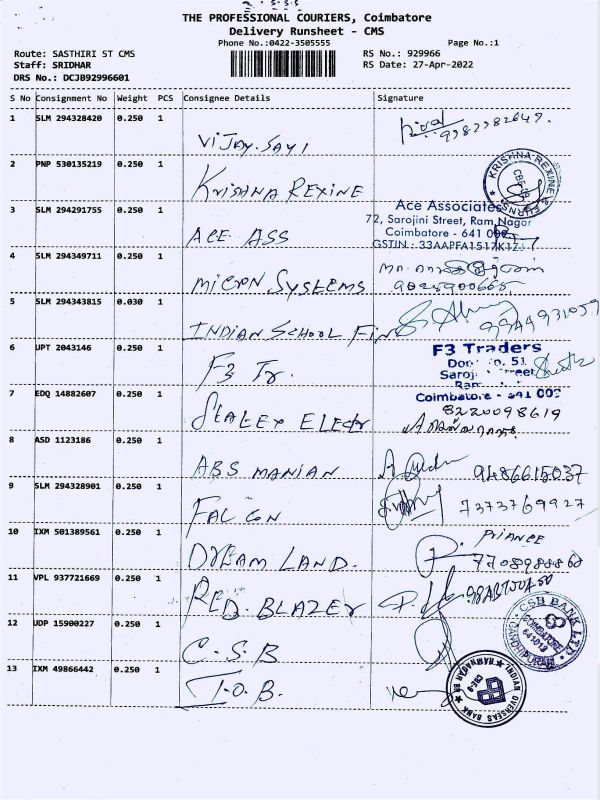 THE PROFESSIONAL COURIERS, Coimbatore
Delivery Runsheet - CMS
Phone No.:0422-3505555
Page No.:1
Route: SASTHIRI ST CMS
RS No.: 929966
Staff: SRIDHAR
RS Date: 27-Apr-2022
DRS No.: DCJB92996601
S No Consignment No Weight PCS Consignee Details Signature
1 SLM 294328420 0.250 1
VIJAY.SAYI
2 PNP 530135219 0.250 1
KRISHNA REXINE
KRISHNA REXINE
3 SLM 294291755 0.250 1
ACE ASS
Ace Associates
72, Sarojini Street, Ram Nagar
Coimbatore - 641 009
GSTIN : 33AAPFA1517K1Z
4 SLM 294349711 0.250 1
MICRON SYSTEMS
5 SLM 294343815 0.030 1
INDIAN SCHOOL FIN
9944931059
6 UPT 2043146 0.250 1
F3 Tr.
F3 Traders
51
Coimbatore - 641 009
7 EDQ 14882607 0.250 1
8220098619
8 ASD 1123186 0.250 1
ABS MANIAN
9486615037
9 SLM 294328901 0.250 1
FALCON
7373769927
10 IXM 501389561 0.250 1
DREAM LAND.
11 VPL 937721669 0.250 1
RED.BLAZER
12 UDP 15900227 0.250 1
C.S.B
CSB BANK LTD.
COIMBATORE
641012
13 IXM 49866442 0.250 1
I.O.B.
INDIAN OVERSEAS BANK